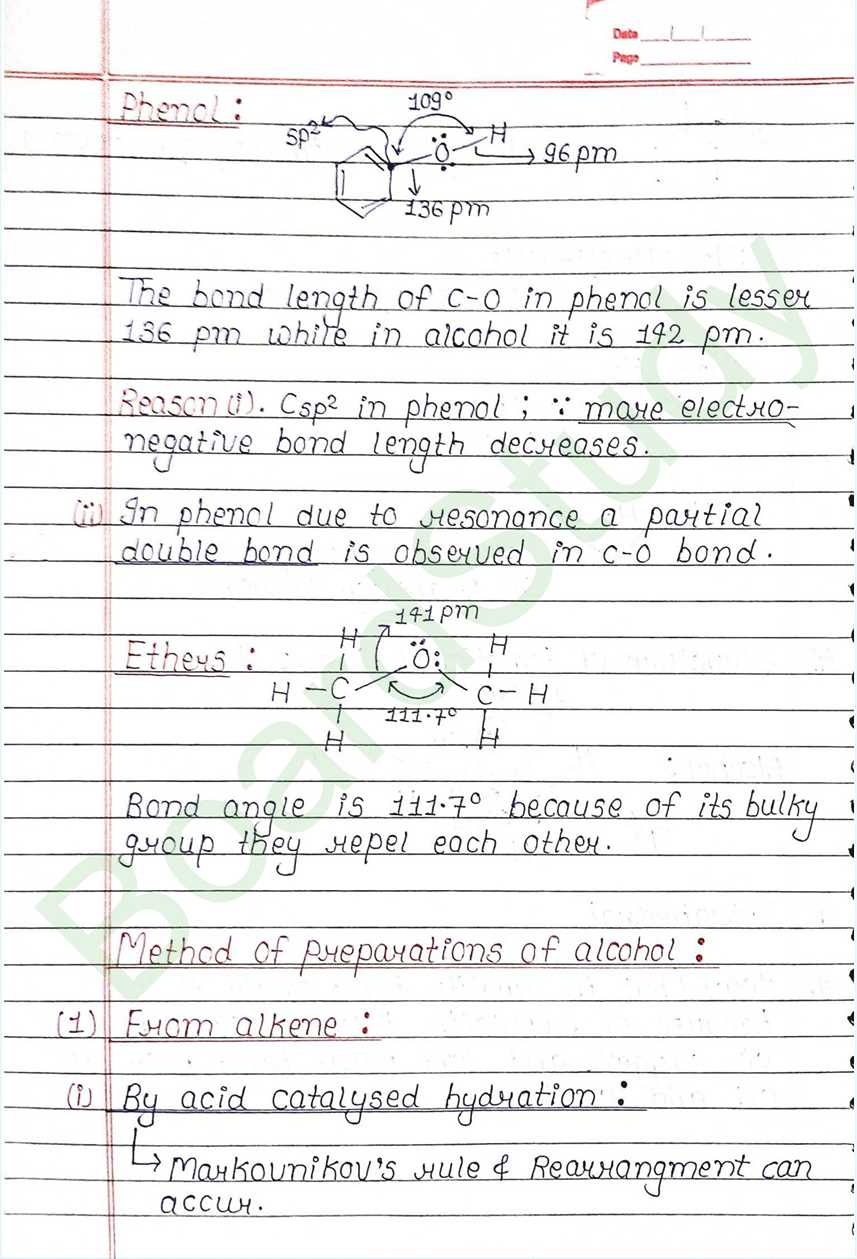 Date
Page
Phenol :
109°
sp²
Ö
H
96 pm
136 pm
The bond length of C-O in phenol is lesser
136 pm while in alcohol it is 142 pm.
Reason (i). Csp² in phenol ; ∵ more electro-
negative bond length decreases.
(ii) In phenol due to resonance a partial
double bond is observed in C-O bond.
141 pm
Ethers :
H
H
Ö:
H - C
C - H
111.7°
H
H
Bond angle is 111.7° because of its bulky
group they repel each other.
Method of preparations of alcohol :
(1) From alkene :
(i) By acid catalysed hydration :
→ Markounikov's rule & Rearrangment can
accur.
BoardStudy